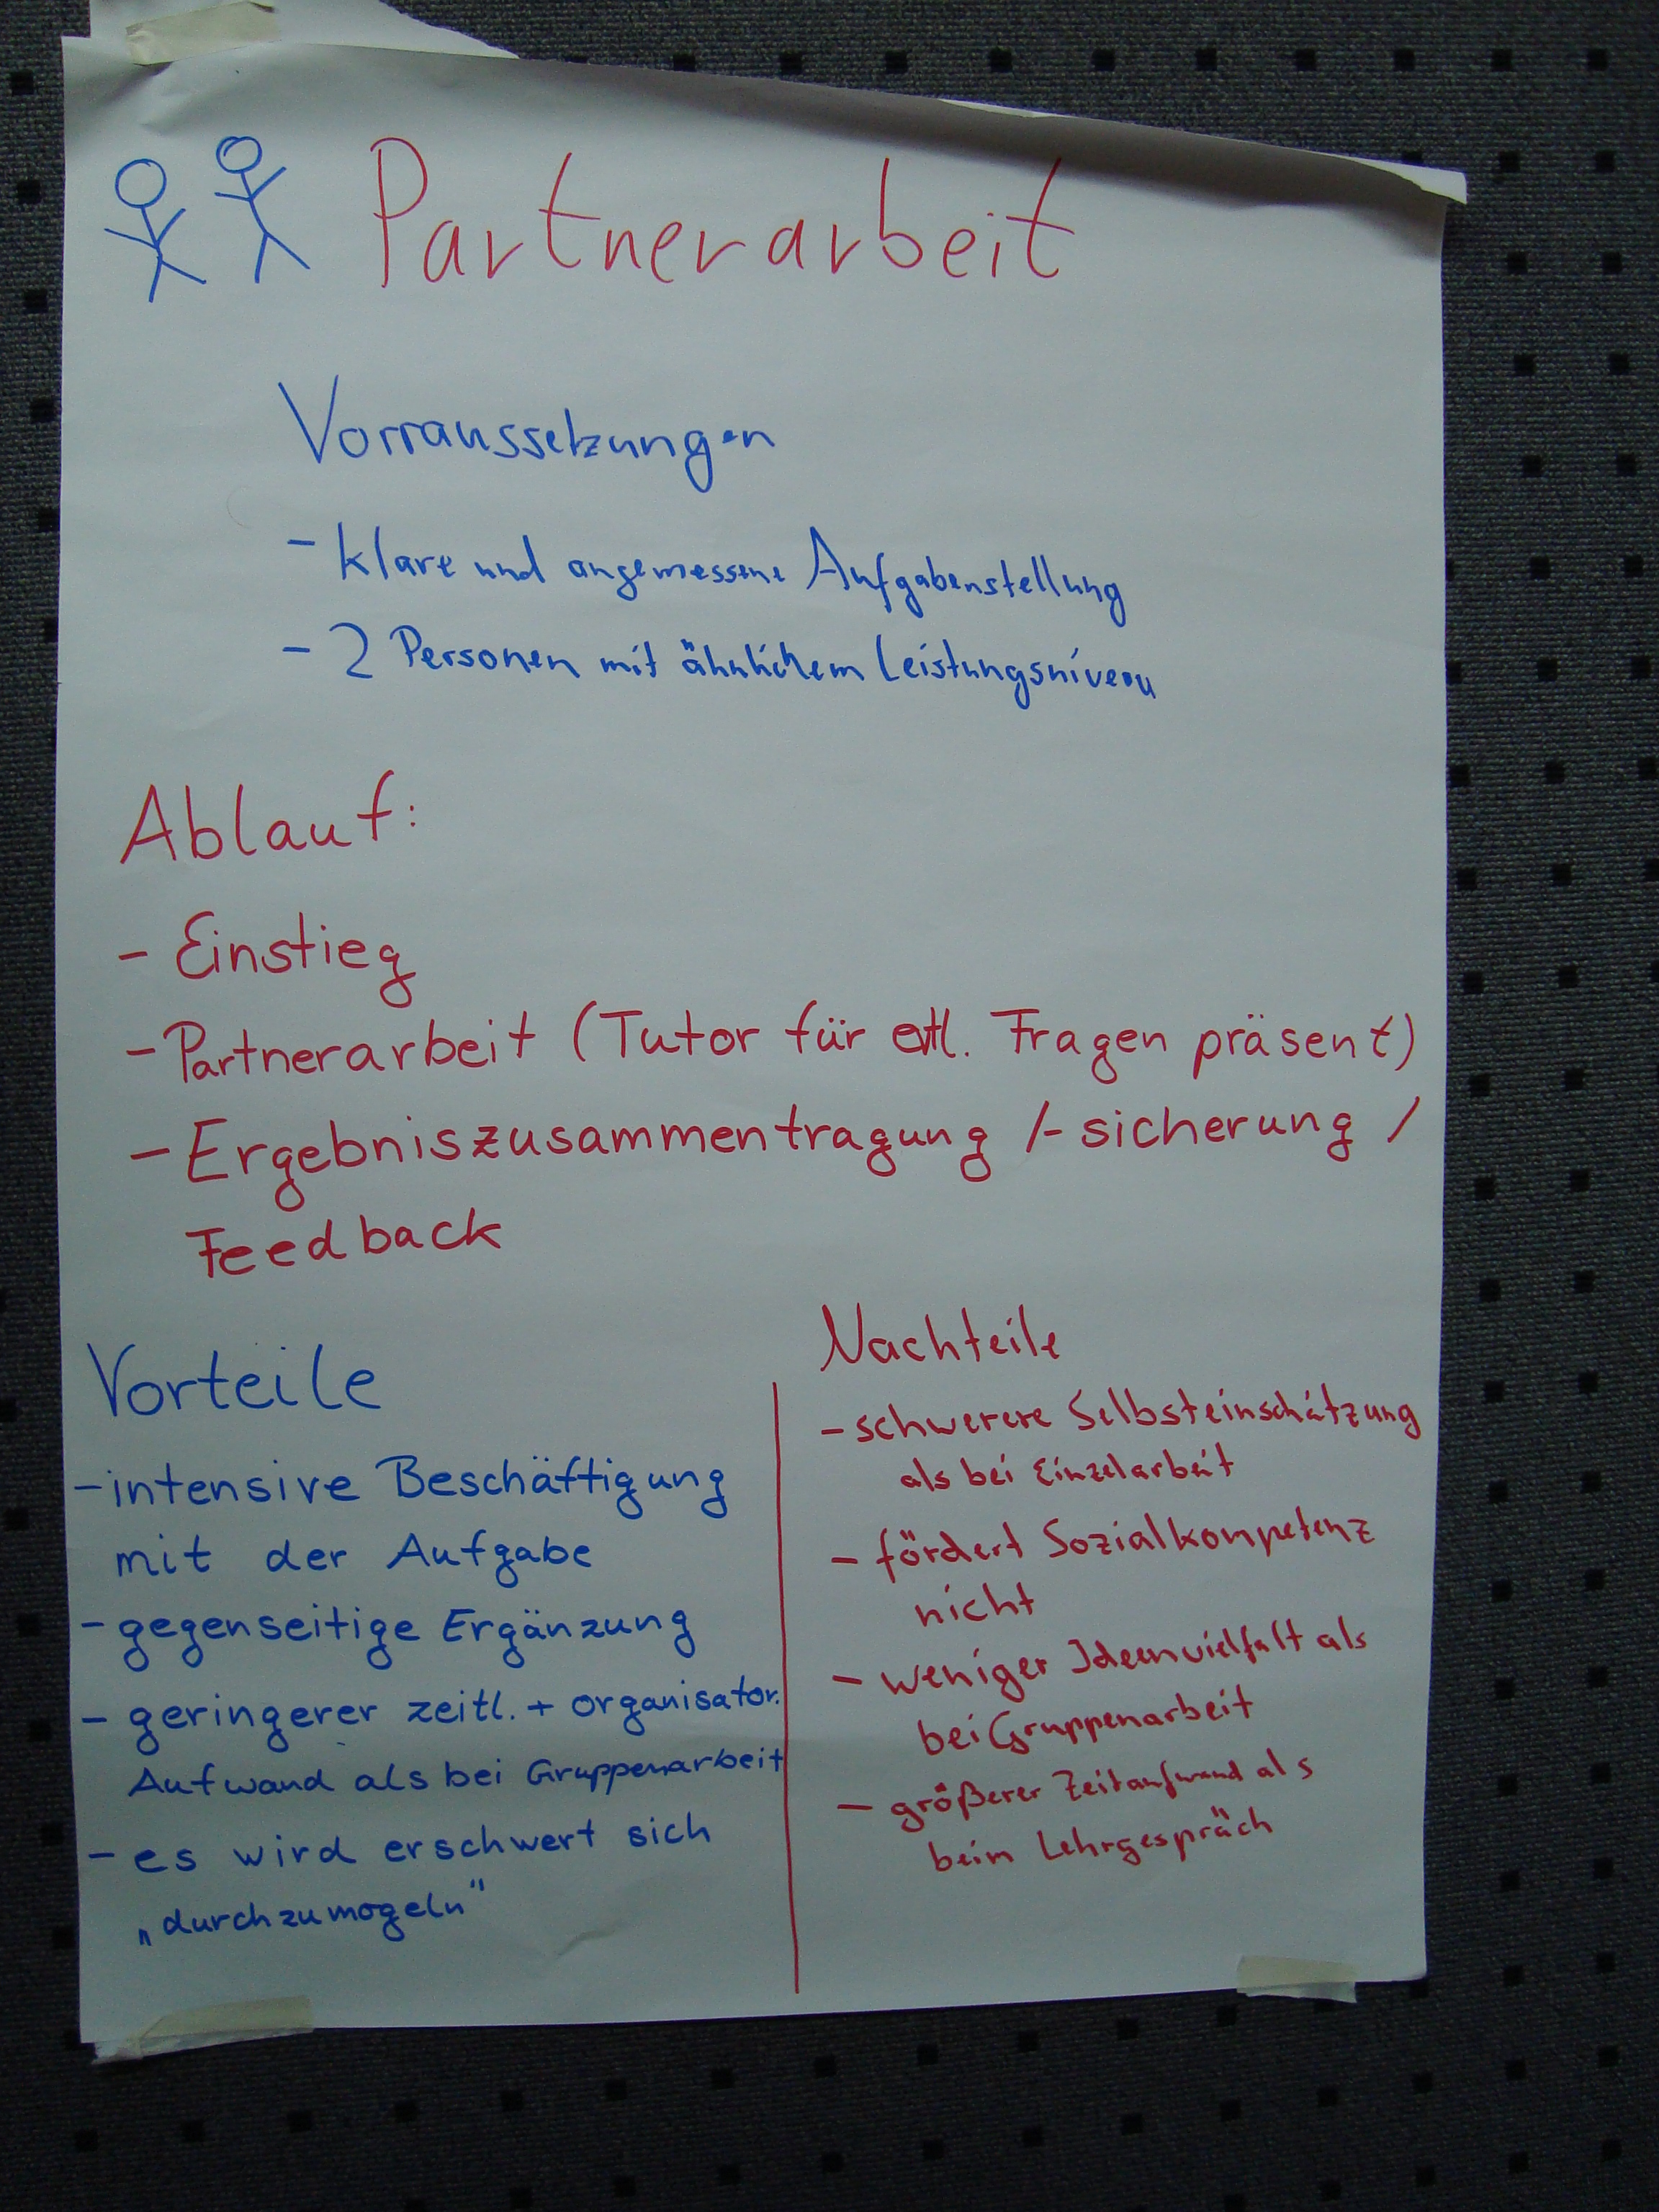 Partnerarbeit
Vorraussetzungen
- klare und angemessene Aufgabenstellung
- 2 Personen mit ähnlichem Leistungsniveau
Ablauf:
- Einstieg
- Partnerarbeit (Tutor für evtl. Fragen präsent)
- Ergebniszusammentragung /- sicherung /
Feedback
Vorteile
- intensive Beschäftigung
mit der Aufgabe
- gegenseitige Ergänzung
- geringerer zeitl. + organisator.
Aufwand als bei Gruppenarbeit
- es wird erschwert sich
„durchzumogeln"
Nachteile
- schwerere Selbsteinschätzung
als bei Einzelarbeit
- fördert Sozialkompetenz
nicht
- weniger Ideenvielfalt als
bei Gruppenarbeit
- größerer Zeitaufwand als
beim Lehrgespräch